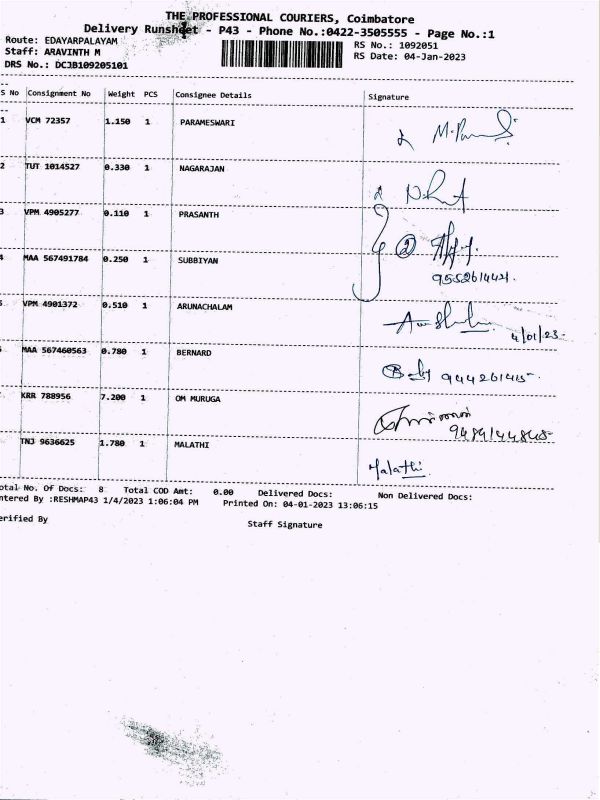 THE PROFESSIONAL COURIERS, Coimbatore
Delivery Runsheet - P43 - Phone No.:0422-3505555 - Page No.:1
Route: EDAYARPALAYAM
Staff: ARAVINTH M
DRS No.: DCJB109205101
RS No.: 1092051
RS Date: 04-Jan-2023
S No Consignment No Weight PCS Consignee Details Signature
1 VCM 72357 1.150 1 PARAMESWARI
2 TUT 1014527 0.330 1 NAGARAJAN
3 VPM 4905277 0.110 1 PRASANTH
4 MAA 567491784 0.250 1 SUBBIYAN
VPM 4901372 0.510 1 ARUNACHALAM
4/01/23
MAA 567460563 0.780 1 BERNARD
KRR 788956 7.200 1 OM MURUGA
TNJ 9636625 1.780 1 MALATHI Malathi
otal No. Of Docs: 8 Total COD Amt: 0.00 Delivered Docs: Non Delivered Docs:
ntered By :RESHMAP43 1/4/2023 1:06:04 PM Printed On: 04-01-2023 13:06:15
erified By Staff Signature